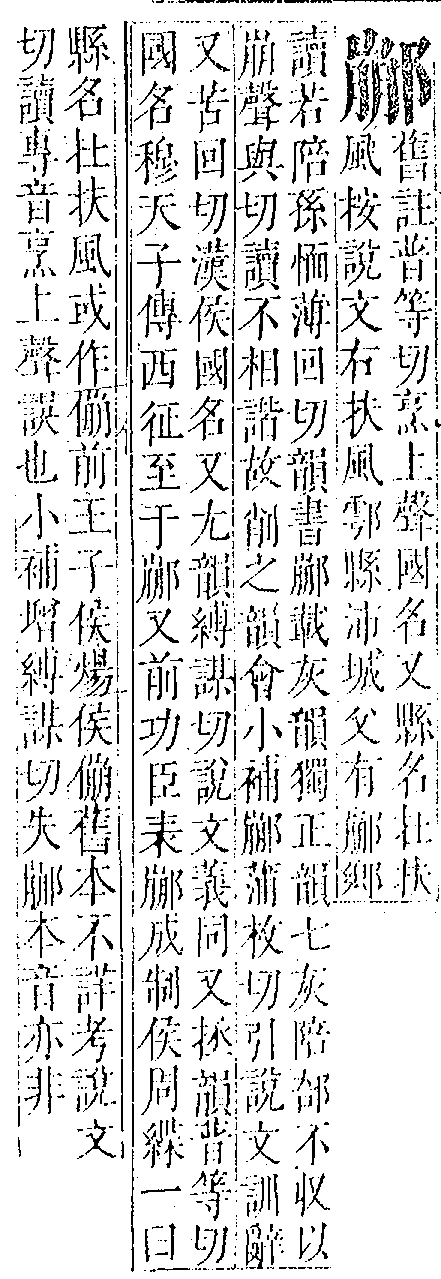 䣙舊註普等切烹上聲國名又縣名在扶
風按說文右扶風鄠縣沛城父有䣙鄉
讀若陪孫愐薄回切韻書䣙載灰韻獨正韻七灰陪部不收以
崩聲與切讀不相諧故削之韻會小補䣙蒲枚切引說文訓辭
又苦回切漢侯國名又尤韻縛謀切說文義同又拯韻普等切
國名穆天子傳西征至于䣙又前功臣表䣙成制侯周緤一曰
縣名在扶風或作傰前王子侯煬侯傰舊本不詳考說文
切讀專音烹上聲誤也小補增縛謀切失䣙本音亦非